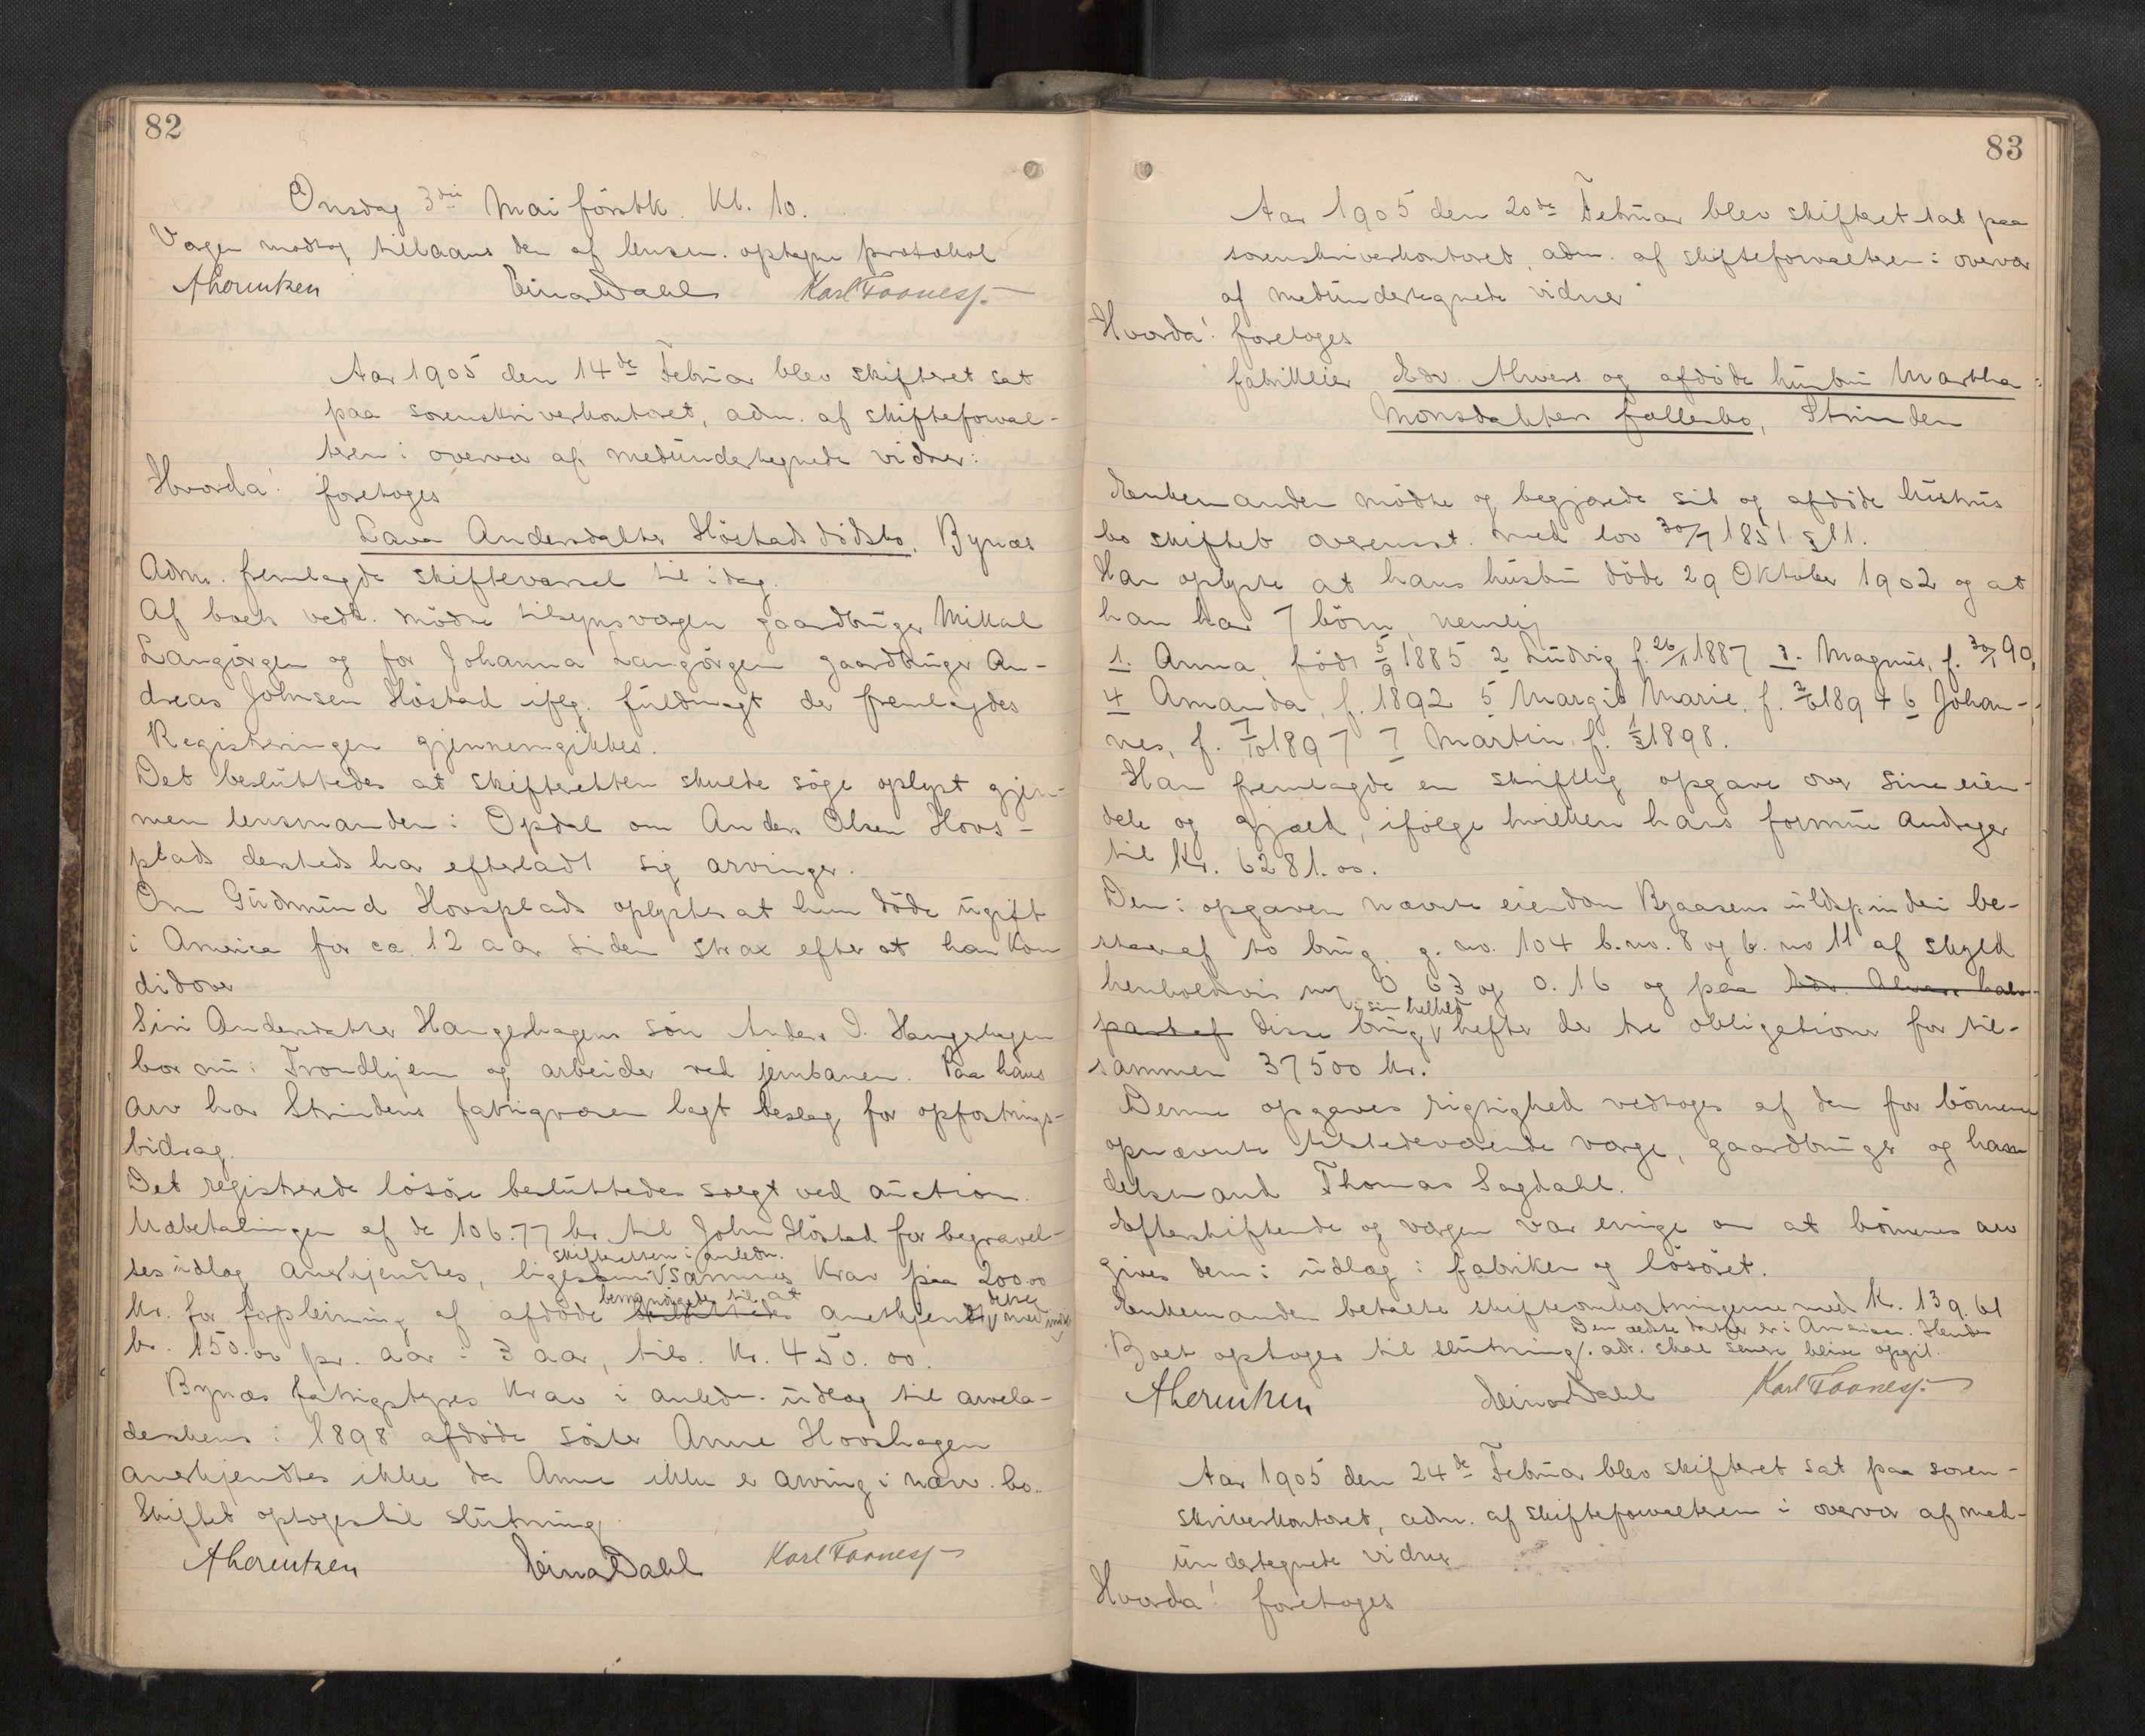 82
Onsdag 3die Mai førstk. Kl. 10.
Vægen modtog tillaans den af lensm. optagne protokol
AhorentZen Einar Dahl Karl Foonesj.
Aar 1905 den 14de Februar blev skifteret sat
paa sorenskriverkontoret, adm. af skifteforval-
teren i overvær af medundertegnede vidner:
Hvorda! foretoges
Lava Andersdatter Høstads dødsbo. Bynæs
Adm. fremlagde skiftevarsel til idag.
Af boets vedk. mødte tilsynsværgen gaardbruger Mikkal
Langørgen og for Johanna Langørgen gaardbruger An-
dreas Johnsen Høstad iflg. fuldmagt der fremlagdes
Registeringen gjennemgikkes.
Det besluttedes at skifteretten skulde søge oplyst gjen-
nem lensmanden i Opdal om Anders Olsen Hovs-
plads dersteds har efterladt sig arvinger.
Om Gudmund Hovsplads oplystes at hun døde ugift
i America for ca. 12 aar siden strax efter at han kom
didover
Siri Andersdatter Haugeshagens søn Anders I. Haugeshagen
bor nu i Trondhjem og arbeider ved jernbanen. Paa hans
arv har Strindens fattigvæsen lagt beslag for opfostrings-
bidrag.
Det registrerede løsøre besluttedes solgt ved auction.
Udbetalingen af de 106.77 kr. til John Høstad for begravel-
skifteretten i anledn.
sesudlæg anerkjendtes, ligesom sammes krav paa 200.00
bemyndigede til at dette
kr. for forpleining af afdøde besluttedes anerkjendt med indtil
kr. 150.00 pr. aar i 3 aar, tils. kr. 450.00.
Bynæs fattigstyres krav i anledn. udlæg til arvela-
derskens i 1898 afdøde søster Anne Hovshagen
anerkjendtes ikke da Anne ikke er arving i nærv. bo.
Skiftet optoges til slutning.
AhorentZen Einar Dahl Karl Foonesj.
83
Aar 1905 den 20de Februar blev skifteret sat paa
sorenskriverkontoret, adm. af skifteforvalteren i overvær
af medundertegnede vidner
Hvorda! foretoges
fabrikeier Edv. Alvers og afdøde hustru Martha
Monsdatters fællesbo, Strinden
Enkemanden mødte og begjærede sit og afdøde hustrus
bo skiftet overensst. med lov 30/7 1851 § 11.
Han oplyste at hans hustru døde 29 Oktober 1902 og at
han har 7 børn, nemlig
1. Anna, født 5/9 1885 2 Ludvig f. 26/1 1887 3. Magnus, f. 30/1 90,
4 Amanda, f. 1892 5 Margit Marie, f. 2/6 1894 6 Johan-
nes, f. 7/10 1897 7 Martin f. 1/3 1898.
Han fremlagde en skriftlig opgave over sine eien-
dele og gjæld, ifølge hvilken hans formue andrager
til kr. 6281.00.
Den i opgaven nævnte eiendom Byaasens uldspinderi be-
staar af to brug. g. no. 104 b. no. 8 og b. no 11 af skyld
henholdsvis mk 0 63 og 0.16 og paa Edv. Alvers halv-
i sin helhed
part af disse brug hefter der tre obligationer for til-
sammen 37500 kr.
Denne opgaves rigtighed vedtoges af den for børnene
opnævnte tilstedeværende værge, gaardbruger og han-
delsmand Thomas Sagdahl.
Efterskiftende og værgen var enige om at børnenes arv
gives dem i udlæg i fabriken og løsøret.
Enkemanden betalte skifteomkostningerne med kr. 139.61
Den ældste datter er i America. Hendes
Boet optoges til slutning. adr. skal senere blive opgit.
AhorentZen Einar Dahl Karl Foonesj.
Aar 1905 den 24de Februar blev skifteret sat paa soren-
skriverkontoret, adm. af skifteforvalteren i overvær af med-
undertegnede vidner
Hvorda! foretoges